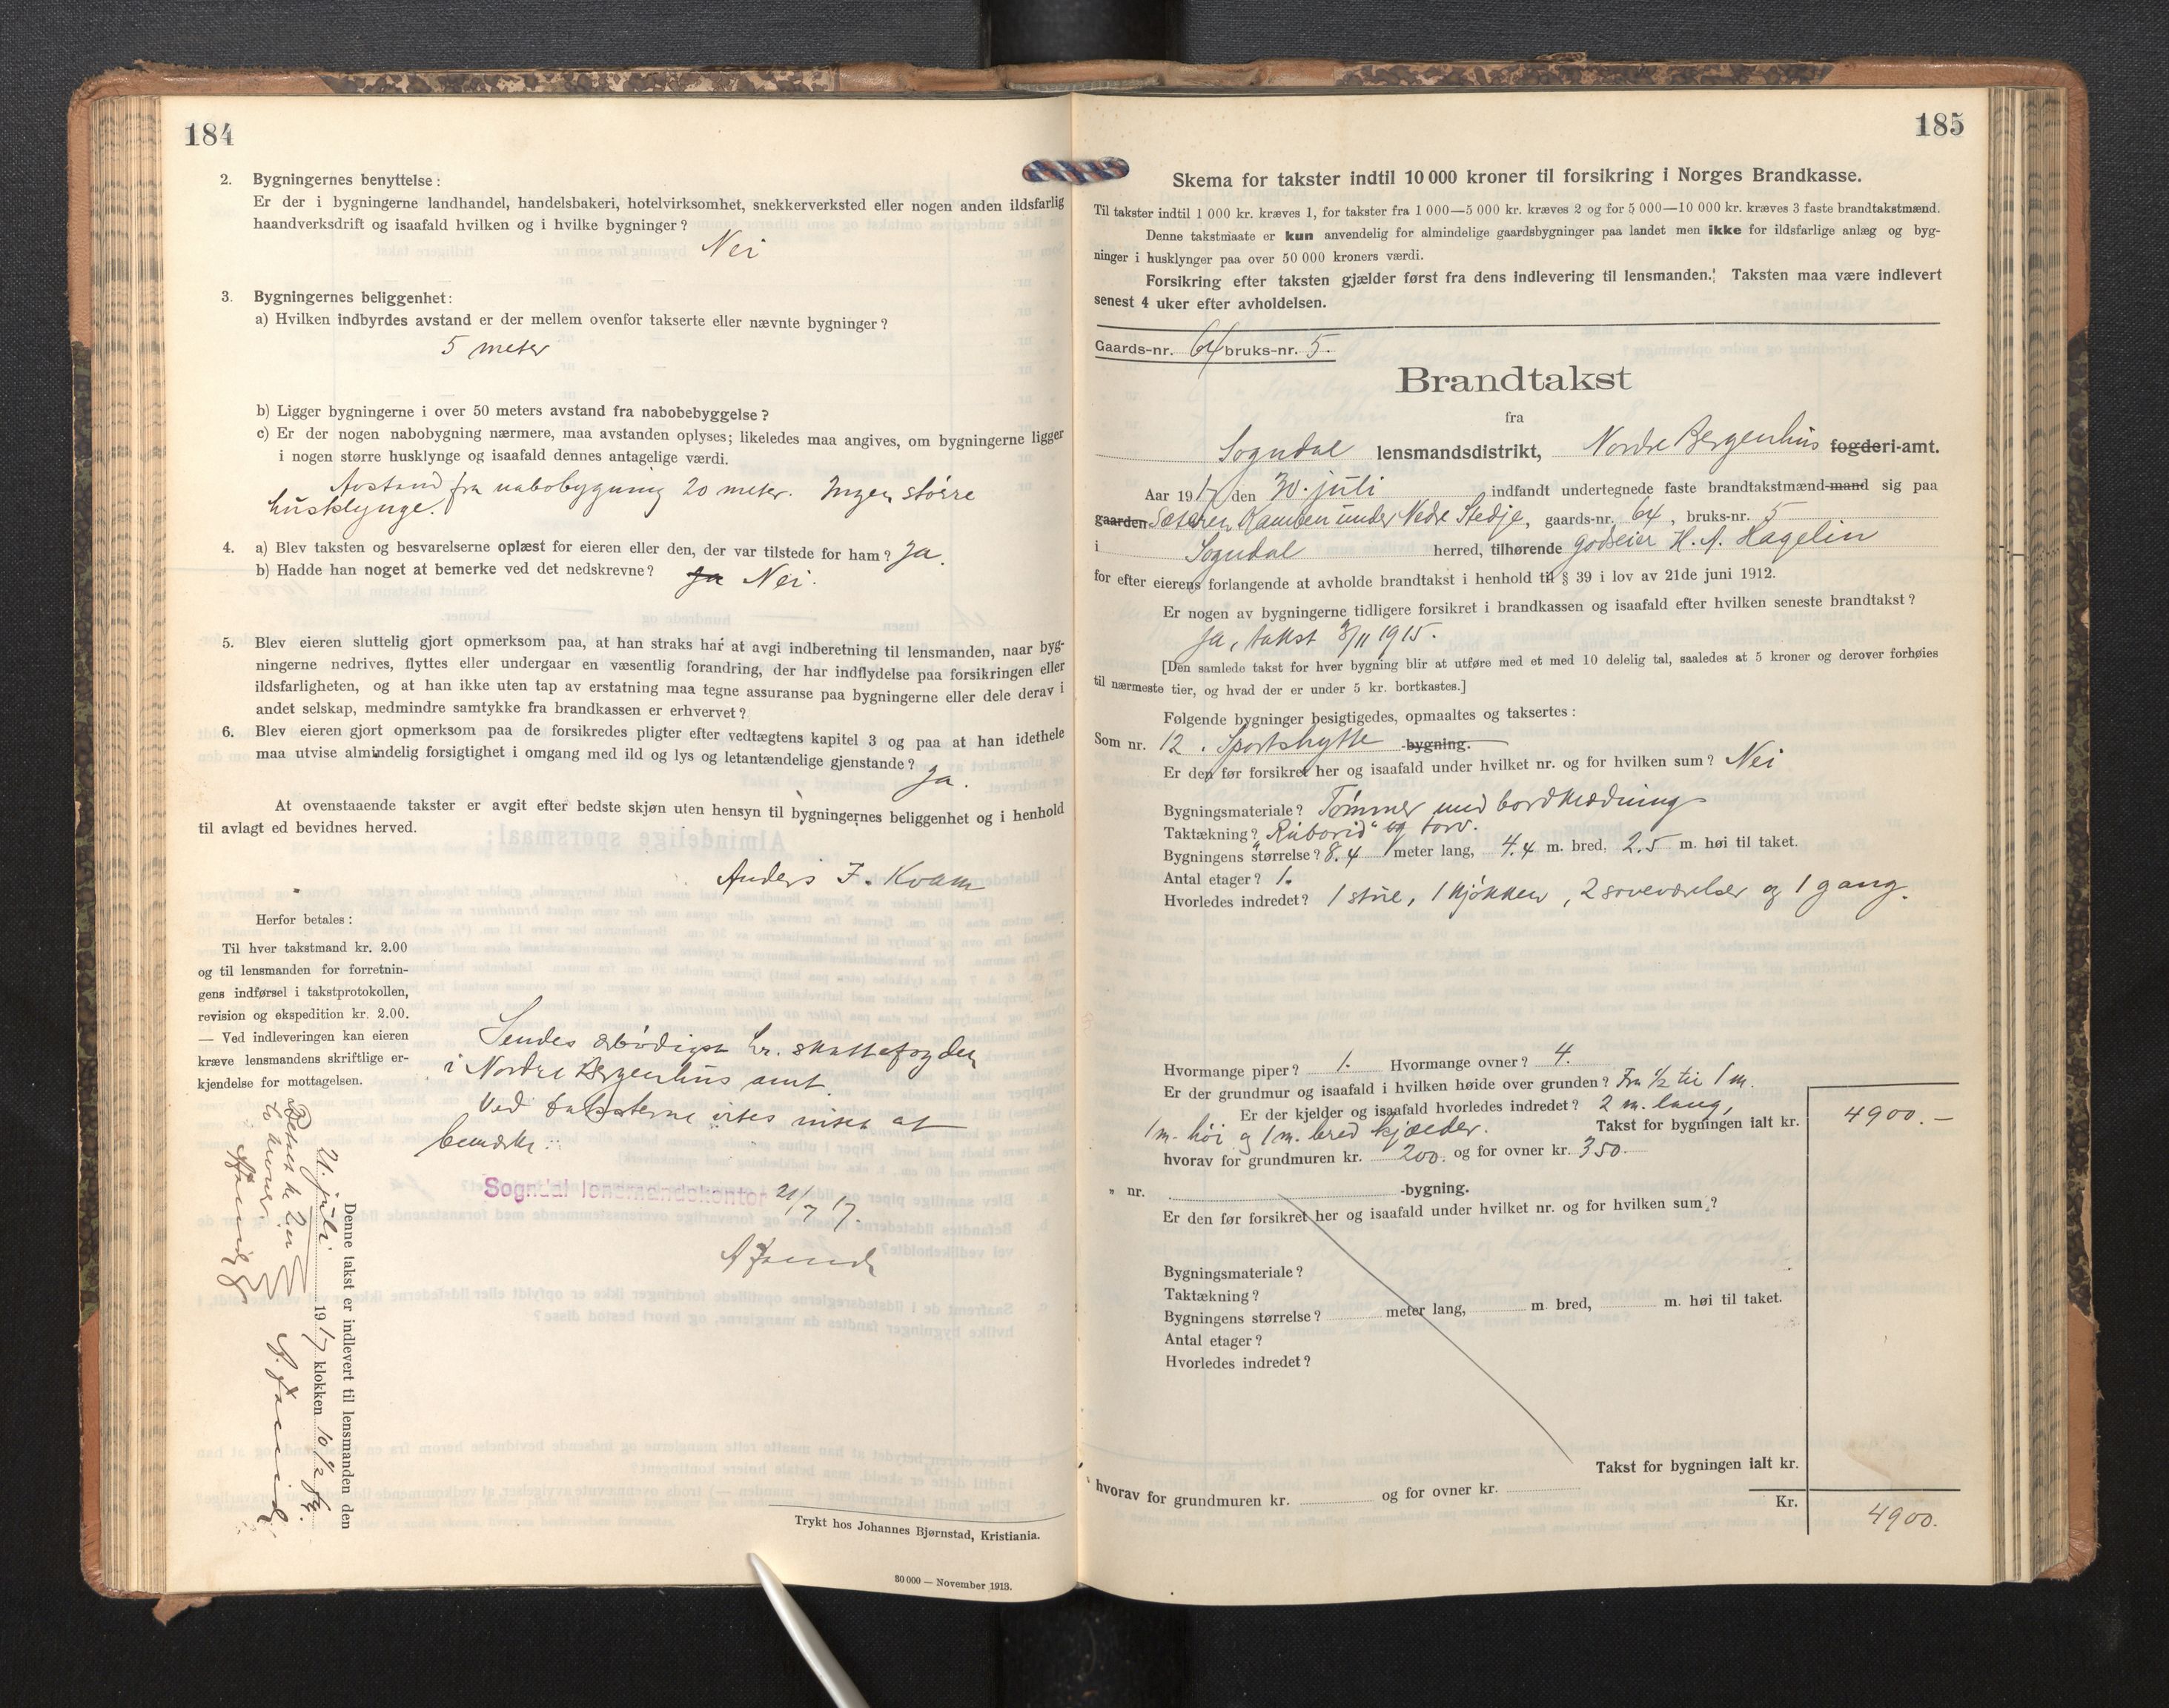 184
2. Bygningernes benyttelse:
Er der i bygningerne landhandel, handelsbakeri, hotelvirksomhet, snekkerverksted eller nogen anden ildsfarlig
haandverksdrift og isaafald hvilken og i hvilke bygninger?
Nei
3. Bygningernes beliggenhet:
a) Hvilken indbyrdes avstand er der mellem ovenfor takserte eller nævnte bygninger?
5 meter
b) Ligger bygningerne i over 50 meters avstand fra nabobebyggelse?
c) Er der nogen nabobygning nærmere, maa avstanden oplyses; likeledes maa angives, om bygningerne ligger
i nogen større husklynge og isaafald dennes antagelige værdi.
Avstand fra nabobygning 20 meter. Ingen større
husklynge.
4. a) Blev taksten og besvarelserne oplæst for eieren eller den, der var tilstede for ham? Ja.
b) Hadde han noget at bemerke ved det nedskrevne? Ja Nei.
5. Blev eieren sluttelig gjort opmerksom paa, at han straks har at avgi indberetning til lensmanden, naar byg-
ningerne nedrives, flyttes eller undergaar en væsentlig forandring, der har indflydelse paa forsikringen eller
ildsfarligheten, og at han ikke uten tap av erstatning maa tegne assuranse paa bygningerne eller dele derav i
andet selskap, medmindre samtykke fra brandkassen er erhvervet?
6. Blev eieren gjort opmerksom paa de forsikredes pligter efter vedtægtens kapitel 3 og paa at han idethele
maa utvise almindelig forsigtighet i omgang med ild og lys og letantændelige gjenstande?
Ja.
At ovenstaaende takster er avgit efter bedste skjøn uten hensyn til bygningernes beliggenhet og i henhold
til avlagt ed bevidnes herved.
Anders J. Kvam
Herfor betales:
Til hver takstmand kr. 2.00
og til lensmanden for forretnin-
gens indførsel i takstprotokollen,
revision og ekspedition kr. 2.00.
— Ved indleveringen kan eieren
kræve lensmandens skriftlige er-
kjendelse for mottagelsen.
Sendes ærbødigst hr. skattefogden
i Nordre Bergenhus amt.
Ved taksterne vites intet at
bemerke.
Sogndal lensmandskontor 21/7 17.
Denne takst er indlevert til lensmanden den
21. juli 1917 klokken 10 1/2 fm.
Trykt hos Johannes Bjørnstad, Kristiania.
30000 — November 1913.
185
Skema for takster indtil 10 000 kroner til forsikring i Norges Brandkasse.
Til takster indtil 1 000 kr. kræves 1, for takster fra 1 000—5 000 kr. kræves 2 og for 5 000—10 000 kr. kræves 3 faste brandtakstmænd.
Denne takstmaate er kun anvendelig for almindelige gaardsbygninger paa landet men ikke for ildsfarlige anlæg og byg-
ninger i husklynger paa over 50 000 kroners værdi.
Forsikring efter taksten gjælder først fra dens indlevering til lensmanden. Taksten maa være indlevert
senest 4 uker efter avholdelsen.
Gaards-nr. 64 bruks-nr. 5.
Brandtakst
fra
Sogndal lensmandsdistrikt, Nordre Bergenhus fogderi-amt.
Aar 1917 den 30. juli indfandt undertegnede faste brandtakstmænd-mand sig paa
gaarden Sæteren Kamben under Nedre Stedje, gaards-nr. 64, bruks-nr. 5
i Sogndal herred, tilhørende godseier H. A. Hagelin
for efter eierens forlangende at avholde brandtakst i henhold til § 39 i lov av 21de juni 1912.
Er nogen av bygningerne tidligere forsikret i brandkassen og isaafald efter hvilken seneste brandtakst?
Ja, takst 3/11 1915.
[Den samlede takst for hver bygning blir at utføre med et med 10 delelig tal, saaledes at 5 kroner og derover forhøies
til nærmeste tier, og hvad der er under 5 kr. bortkastes.]
Følgende bygninger besigtigedes, opmaaltes og taksertes:
Som nr. 12. Sportshytte -bygning.
Er den før forsikret her og isaafald under hvilket nr. og for hvilken sum? Nei
Bygningsmateriale? Tømmer med bordklædning
Taktækning? "Ruberoid" og torv.
Bygningens størrelse? 8.4 meter lang, 4.4 m. bred, 2.5 m. høi til taket.
Antal etager? 1.
Hvorledes indredet? 1 stue, 1 kjøkken, 2 soveværelser og 1 gang.
Hvormange piper? 1. Hvormange ovner? 4.
Er der grundmur og isaafald i hvilken høide over grunden? Fra 1/2 til 1 m.
Er der kjelder og isaafald hvorledes indredet? 2 m. lang,
1 m. høi og 1 m. bred kjælder. Takst for bygningen ialt kr. 4900.—
hvorav for grundmuren kr. 200. og for ovner kr. 350.
" nr. -bygning.
Er den før forsikret her og isaafald under hvilket nr. og for hvilken sum?
Bygningsmateriale?
Taktækning?
Bygningens størrelse? meter lang, m. bred, m. høi til taket.
Antal etager?
Hvorledes indredet?
Takst for bygningen ialt kr.
hvorav for grundmuren kr. og for ovner kr.
Kr. 4900.